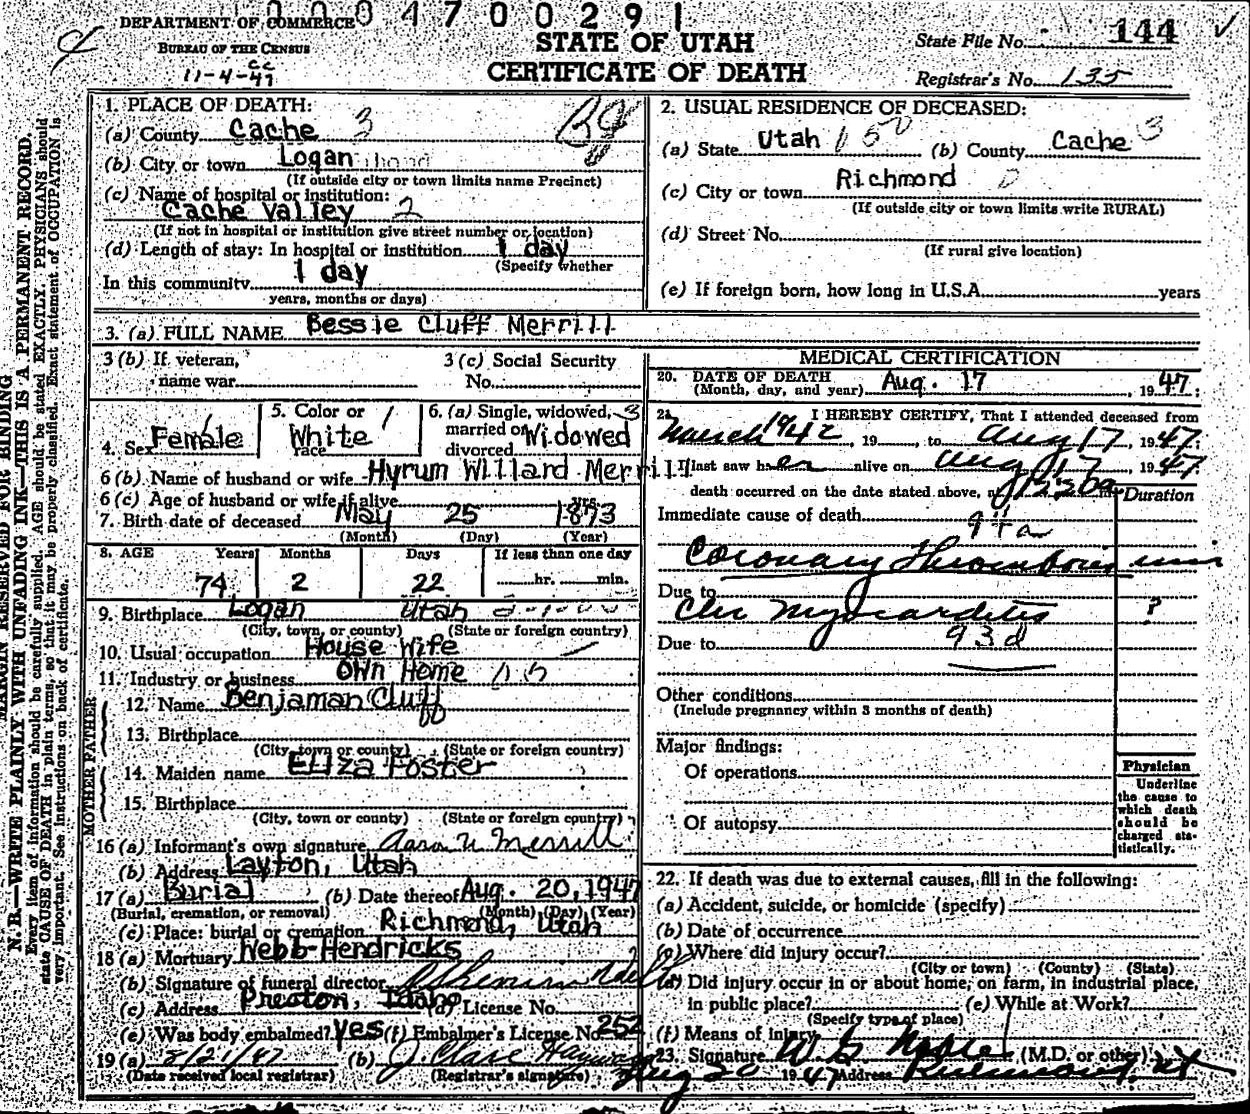 0004700291
DEPARTMENT OF COMMERCE
BUREAU OF THE CENSUS
11-4-47
STATE OF UTAH
CERTIFICATE OF DEATH
State File No. 144
Registrar's No. 135
MARGIN RESERVED FOR BINDING
N. B.—WRITE PLAINLY WITH UNFADING INK—THIS IS A PERMANENT RECORD.
Every item of information should be carefully supplied. AGE should be stated EXACTLY. PHYSICIANS should
state CAUSE OF DEATH in plain terms, so that it may be properly classified. Exact statement of OCCUPATION is
very important. See instructions on back of certificate.
1. PLACE OF DEATH:
(a) County Cache 3
(b) City or town Logan
(If outside city or town limits name Precinct)
(c) Name of hospital or institution:
Cache Valley 2
(If not in hospital or institution give street number or location)
(d) Length of stay: In hospital or institution 1 day
(Specify whether
In this community 1 day
years, months or days)
2. USUAL RESIDENCE OF DECEASED:
(a) State Utah (b) County Cache 3
(c) City or town Richmond
(If outside city or town limits write RURAL)
(d) Street No.
(If rural give location)
(e) If foreign born, how long in U.S.A. years
3. (a) FULL NAME Bessie Cluff Merrill
3 (b) If veteran, name war
3 (c) Social Security No.
4. Sex Female
5. Color or race White
6. (a) Single, widowed, married or divorced Widowed
6 (b) Name of husband or wife Hyrum Willard Merrill
6 (c) Age of husband or wife if alive yrs.
7. Birth date of deceased May 25 1873
(Month) (Day) (Year)
8. AGE Years Months Days If less than one day
74 2 22 hr. min.
9. Birthplace Logan Utah
(City, town, or county) (State or foreign country)
10. Usual occupation House Wife
11. Industry or business Own Home
FATHER
12. Name Benjaman Cluff
13. Birthplace
(City, town or county) (State or foreign country)
MOTHER
14. Maiden name Eliza Foster
15. Birthplace
(City, town or county) (State or foreign country)
16 (a) Informant's own signature Merrill
(b) Address Layton, Utah
17 (a) Burial (b) Date thereof Aug. 20, 1947
(Burial, cremation, or removal) (Month) (Day) (Year)
(c) Place: burial or cremation Richmond, Utah
18 (a) Mortuary Webb-Hendricks
(b) Signature of funeral director
(c) Address Preston, Idaho (d) License No.
(e) Was body embalmed? Yes (f) Embalmer's License No. 252
19 (a) 8/21/47 (b) J. Clare
(Date received local registrar) (Registrar's signature)
MEDICAL CERTIFICATION
20. DATE OF DEATH
(Month, day, and year) Aug. 17, 1947:
21. I HEREBY CERTIFY, That I attended deceased from
March 1942, 19 , to Aug 17, 1947;
I last saw her alive on Aug 17, 1947
death occurred on the date stated above,
Duration
Immediate cause of death
94a
Coronary Thrombosis min
Due to
Chr Myocarditis ?
Due to 93d
Other conditions
(Include pregnancy within 3 months of death)
Major findings:
Of operations
Of autopsy
Physician
Underline
the cause to
which death
should be
charged sta-
tistically.
22. If death was due to external causes, fill in the following:
(a) Accident, suicide, or homicide (specify)
(b) Date of occurrence
(c) Where did injury occur?
(City or town) (County) (State)
(d) Did injury occur in or about home, on farm, in industrial place,
in public place? (e) While at Work?
(Specify type of place)
(f) Means of injury
23. Signature W G (M.D. or other)
Aug 20 1947 Address Richmond, Ut